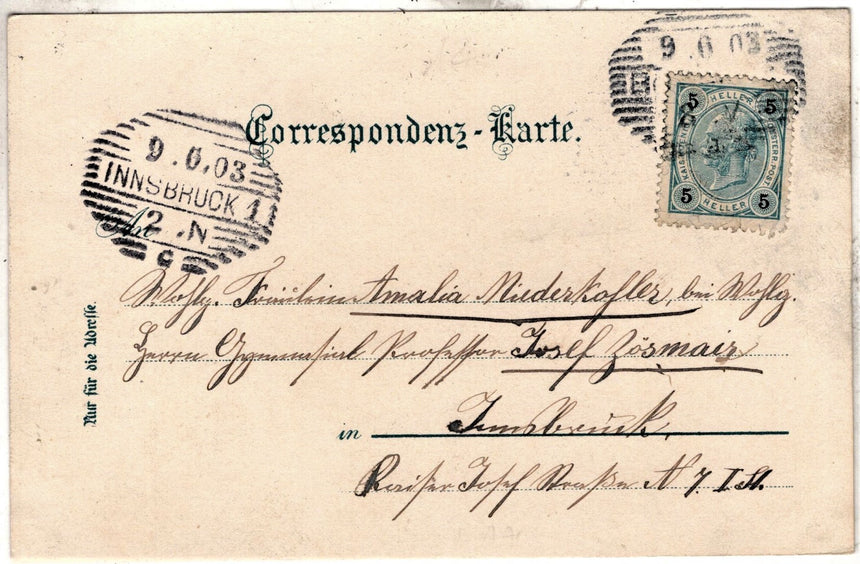 Correspondenz-Karte.
9 . 6 03
5 HELLER 5
KAISERL. KÖN. ÖSTERR. POST.
5 HELLER 5
9.6.03
INNSBRUCK 1
2 . N
An
Wohlg. Fräulein Amalia Niederkofler, bei Wohlg.
Herrn Gymnasial Professor Josef Zösmair
in Innsbruck.
Kaiser Josef Straße N 7 I St.
Nur für die Adresse.